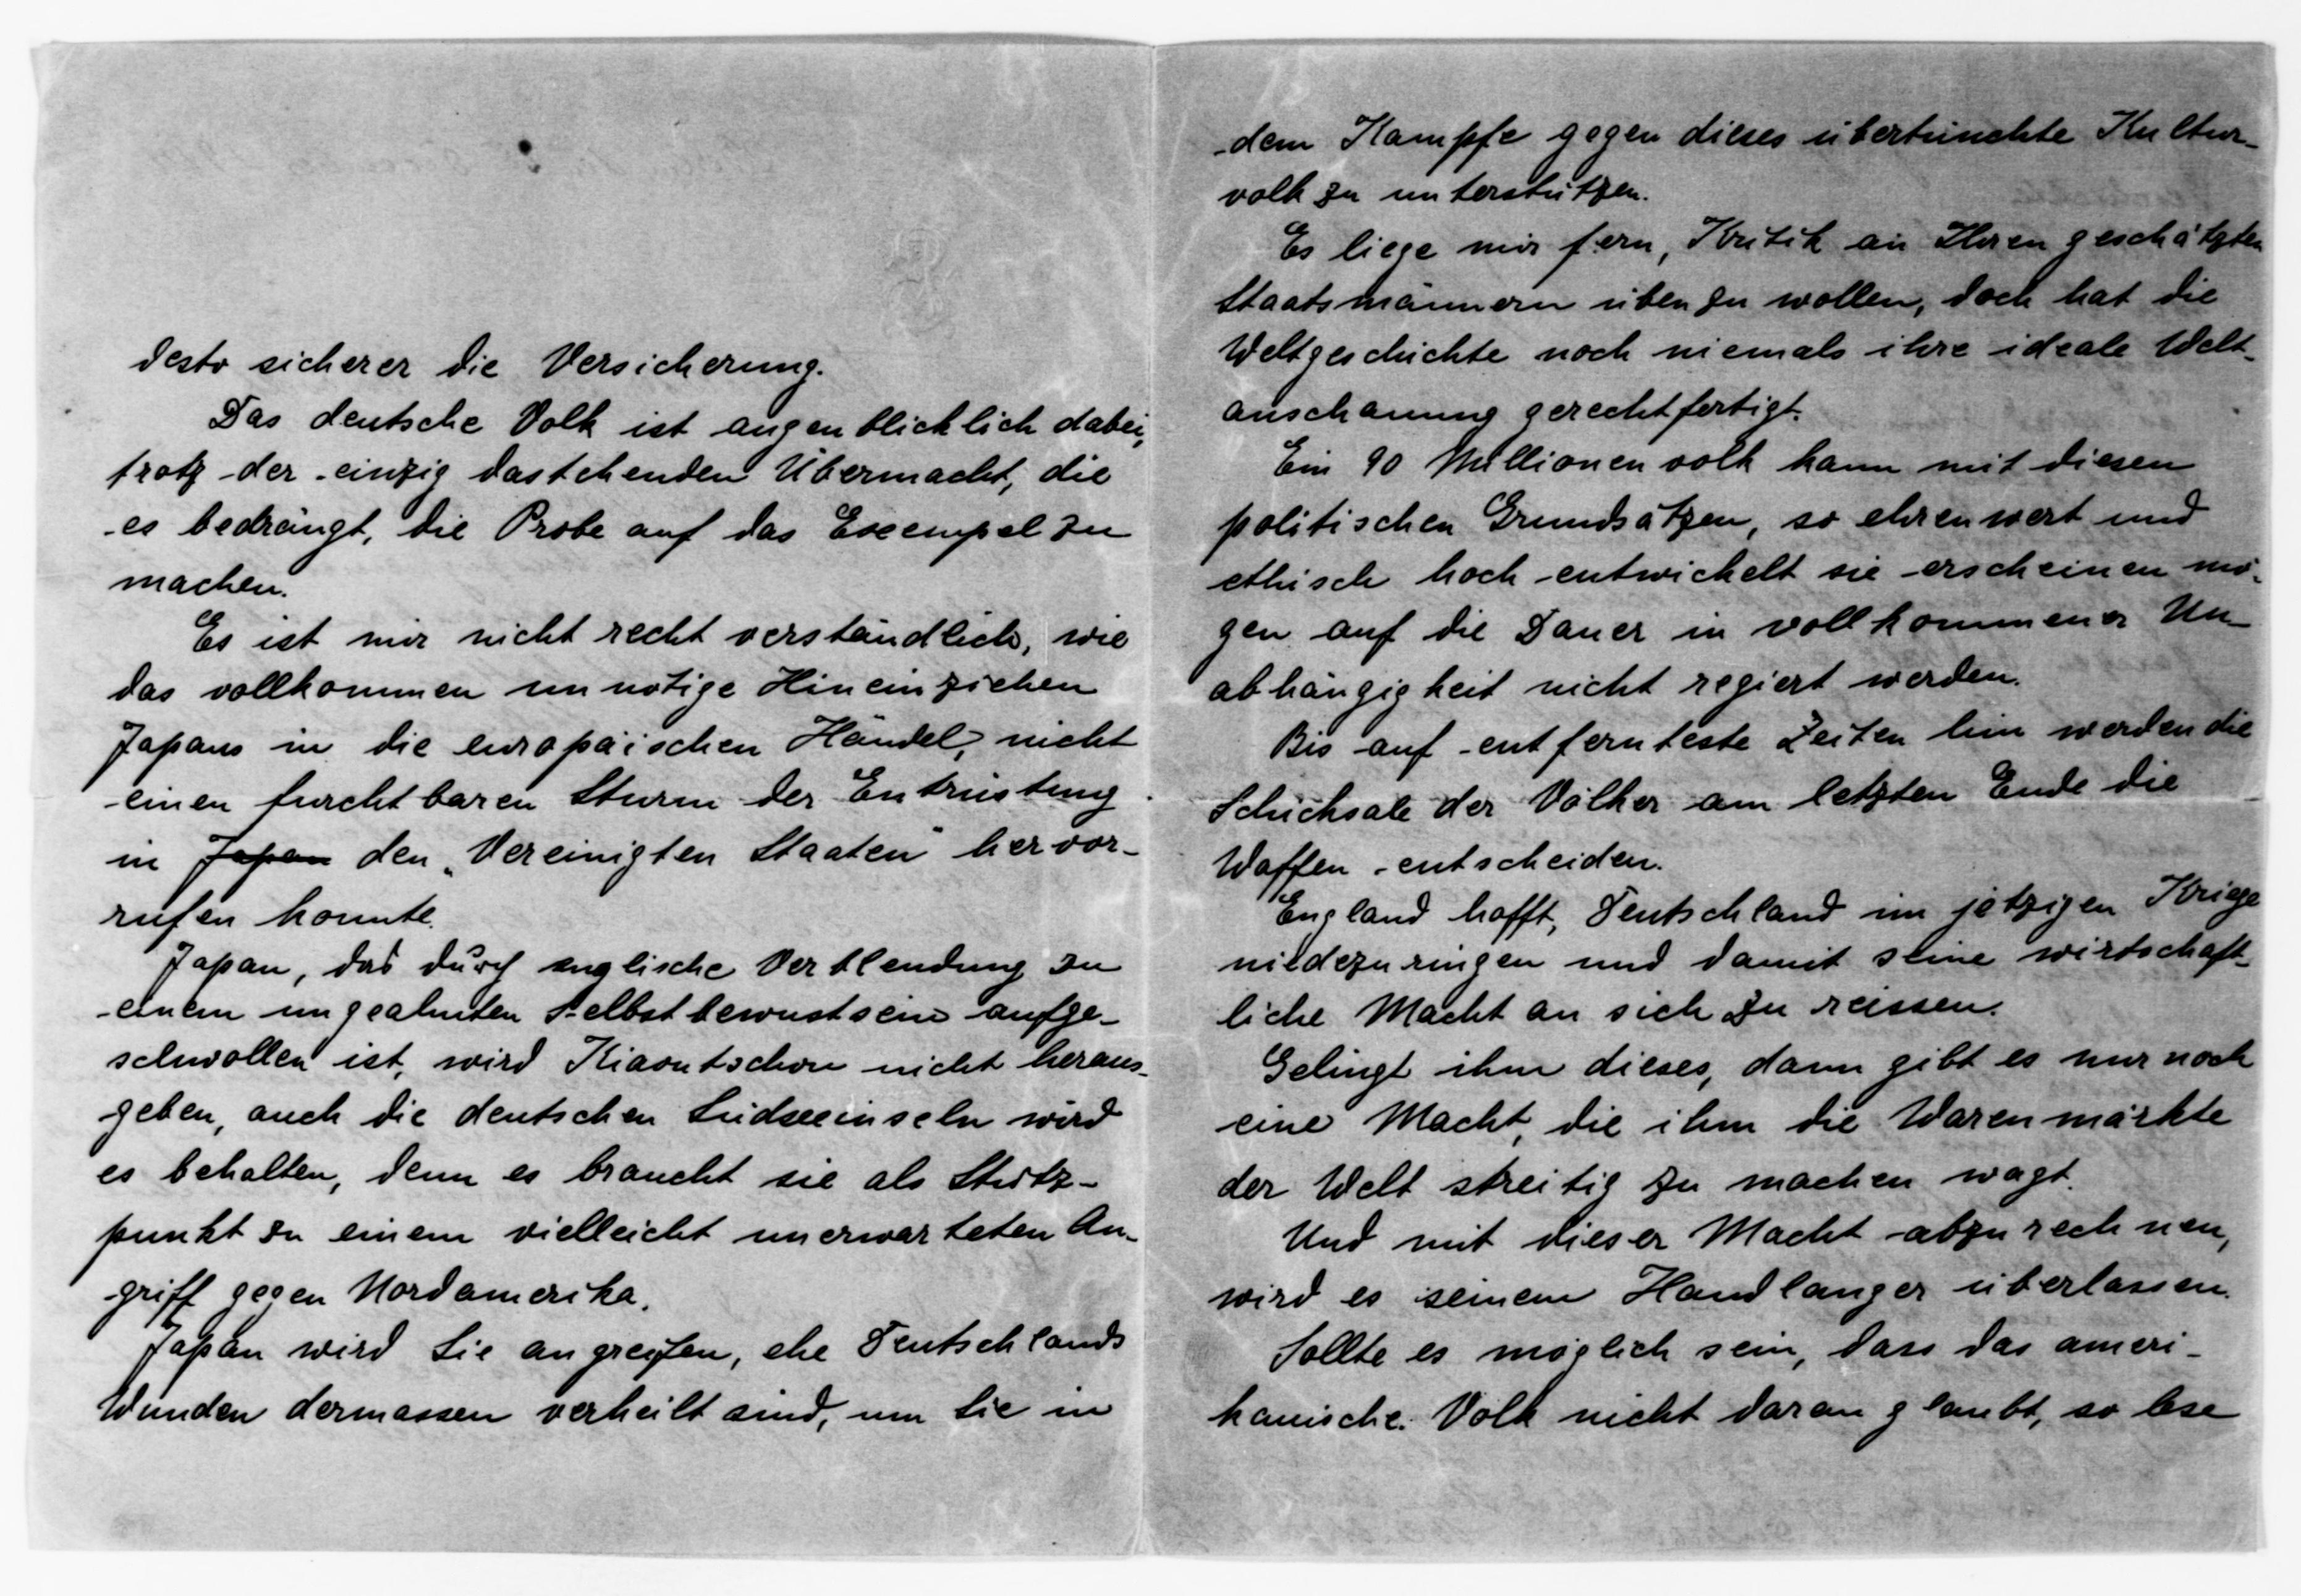 desto sicherer die Versicherung.
Das deutsche Volk ist augenblicklich dabei,
trotz der einzig dastehenden Übermacht, die
es bedrängt, die Probe auf das Exempel zu
machen.
Es ist mir nicht recht verständlich, wie
das vollkommen unnötige Hineinziehen
Japans in die europäischen Händel, nicht
einen furchtbaren Sturm der Entrüstung
in Japan den „Vereinigten Staaten" hervor-
rufen konnte.
Japan, das durch englische Verblendung zu
einem ungeahnten Selbstbewustsein aufge-
schwollen ist, wird Kiaoutschou nicht heraus-
geben, auch die deutschen Südseeinseln wird
es behalten, denn es braucht sie als Stütz-
punkt zu einem vielleicht unerwarteten An-
griff gegen Nordamerika.
Japan wird Sie angreifen, ehe Deutschlands
Wunden dermassen verheilt sind, um Sie in
dem Kampfe gegen dieses übertünchte Kultur-
volk zu unterstützen.
Es liege mir fern, Kritik an Ihren geschätzten
Staatsmännern üben zu wollen, doch hat die
Weltgeschichte noch niemals ihre ideale Welt-
anschauung gerechtfertigt.
Ein 90 Millionenvolk kann mit diesen
politischen Grundsätzen, so ehrenwert und
ethisch hoch entwickelt sie erscheinen mö-
gen auf die Dauer in vollkommener Un-
abhängigkeit nicht regiert werden.
Bis auf entfernteste Zeiten hin werden die
Schicksale der Völker am letzten Ende die
Waffen entscheiden.
England hofft, Deutschland im jetzigen Kriege
niedezuringen und damit seine wirtschaft-
liche Macht an sich zu reissen.
Gelingt ihm dieses, dann gibt es nur noch
eine Macht, die ihm die Warenmärkte
der Welt streitig zu machen wagt.
Und mit dieser Macht abzurechnen,
wird es seinem Handlanger überlassen.
Sollte es möglich sein, dass das ameri-
kanische Volk nicht daran glaubt, so lese